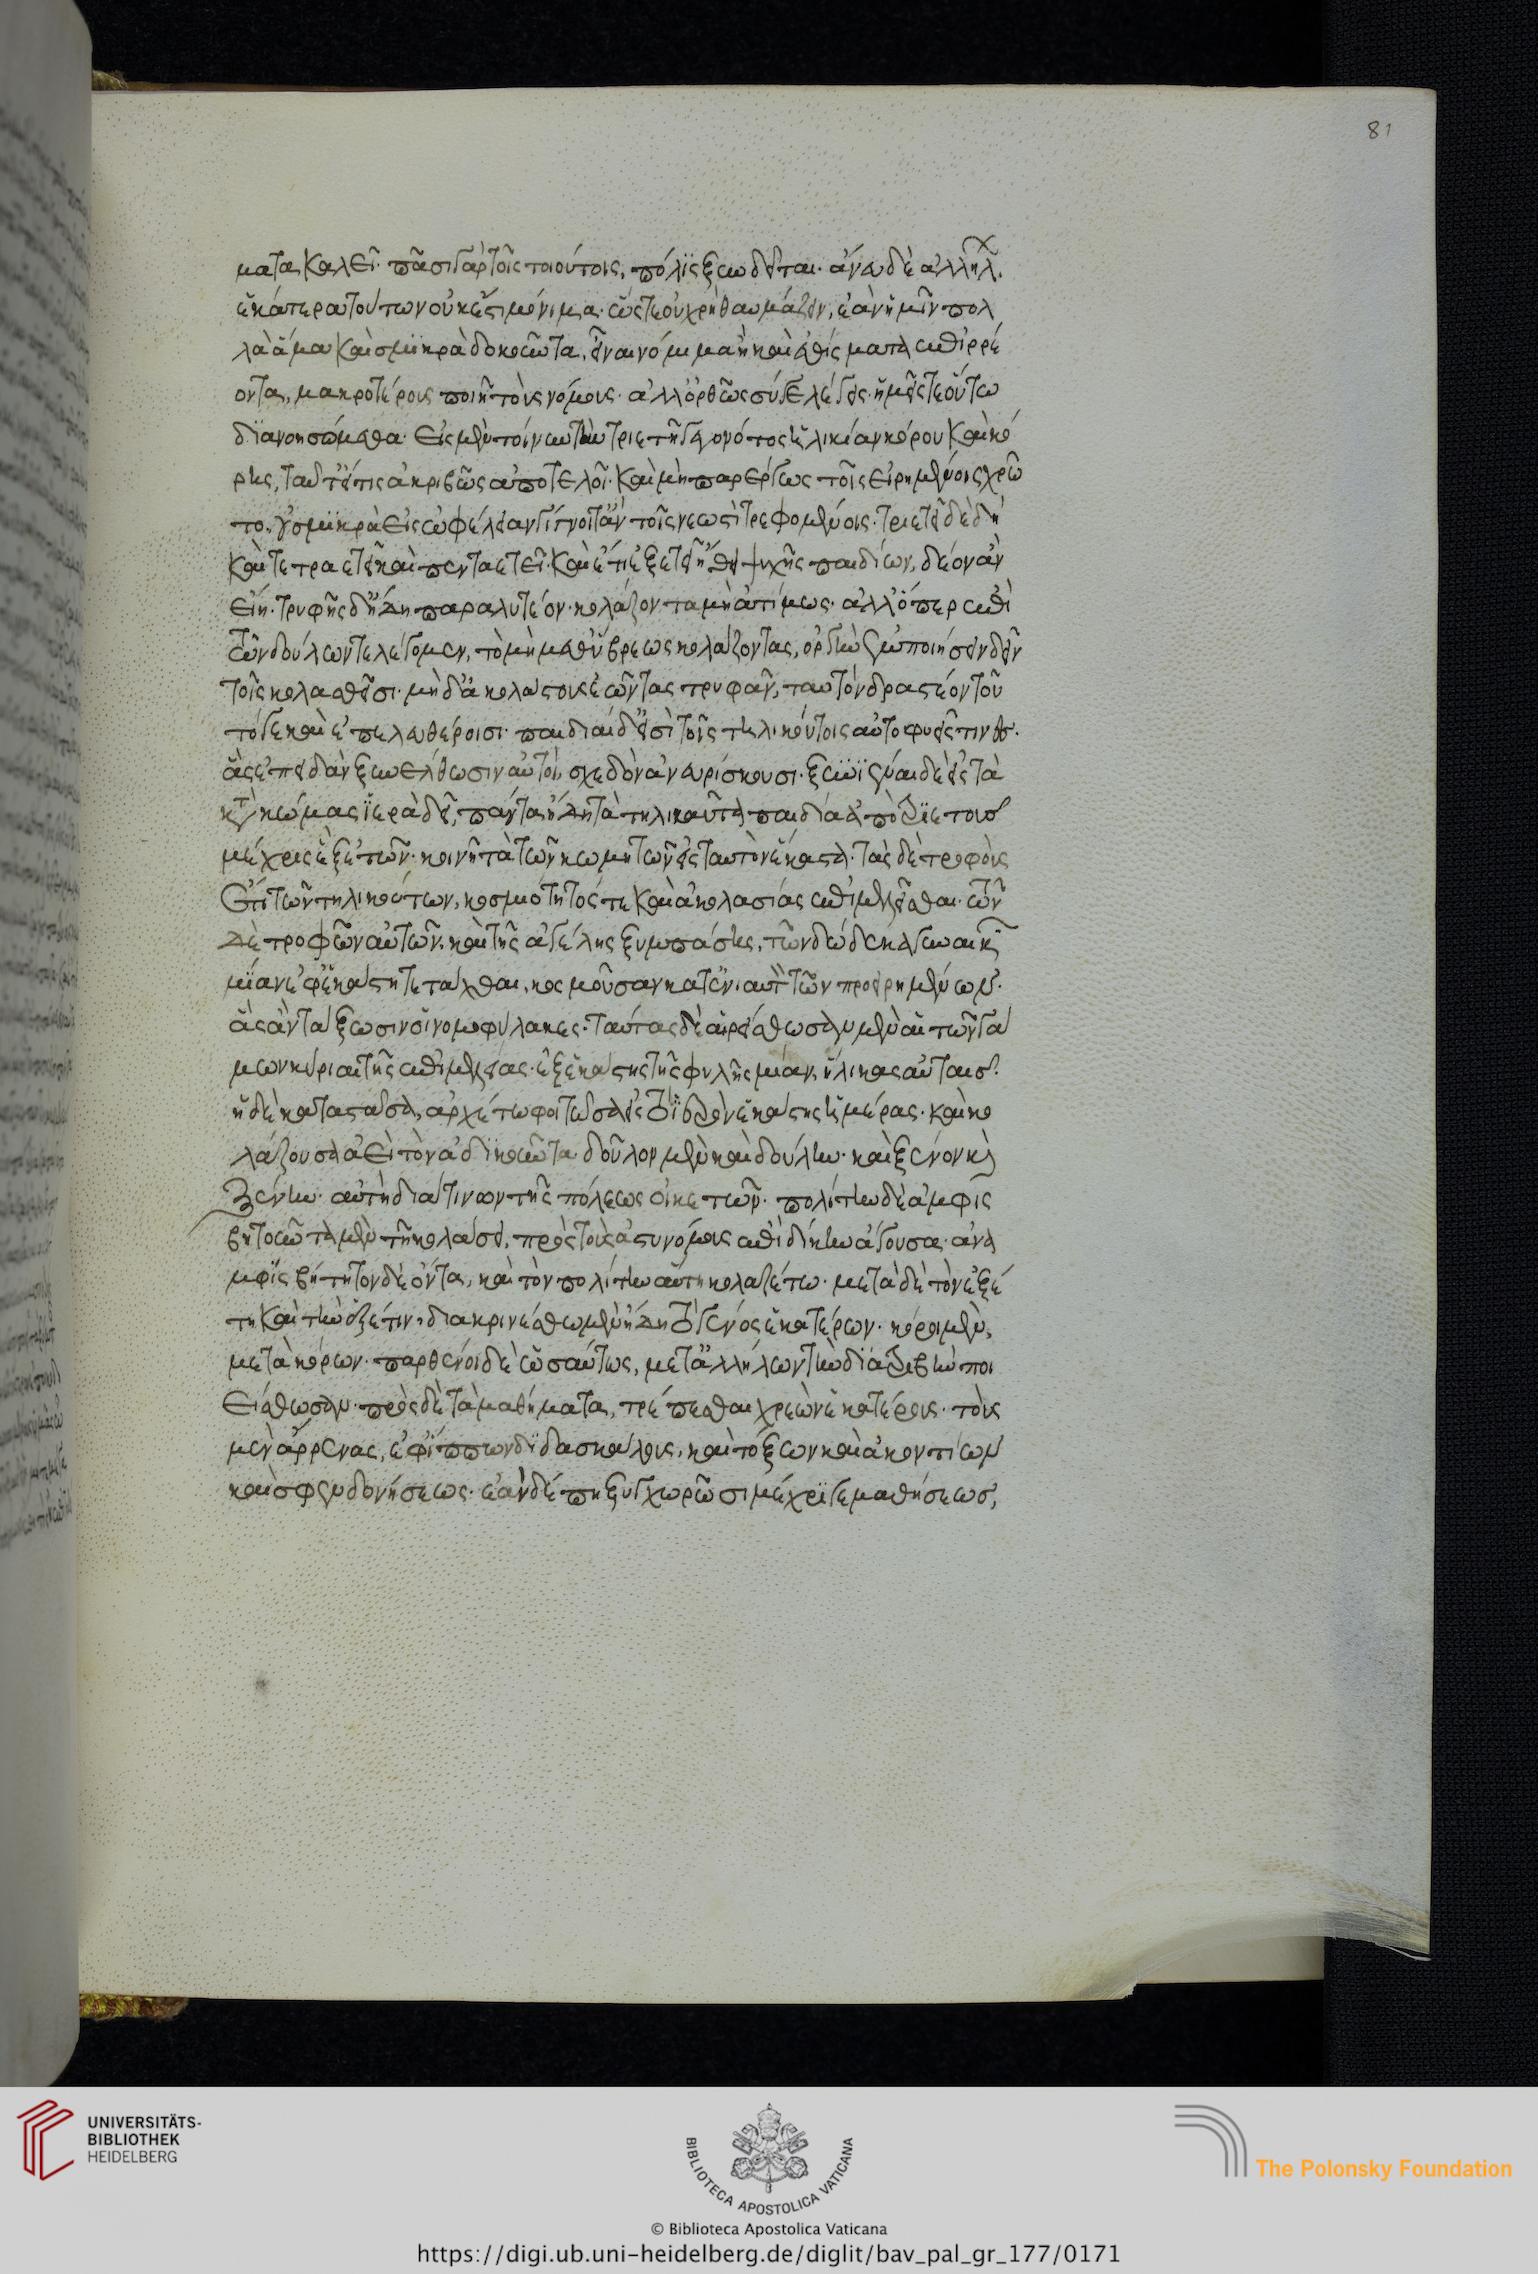 ματα καλεῖ· πᾶσι γὰρ τοῖς τοιούτοις, πόλϊς ξυνδεῖται· ἄνευ δὲ ἀλλήλ.
ἑκάτερα τούτων οὐκ ἔστι μόνιμα· ὥστε οὐ χρὴ θαυμάζειν, ἐὰν ἡμῖν πολ
λὰ ἅμα καὶ σμϊκρὰ δοκοῦντα, εἶναι νόμιμα ἢ καὶ ἐθίσματα ἐπιρρέ
οντα, μακροτέρους ποιῆ τοὺς νόμους· ἀλλ' ὀρθῶς σύ γε λέγεις· ἡμεῖς τε οὕτω
διανοησώμεθα· εἰς μὲν τοίνυν τὴν τριετῆ γεγονότος ἡλικίαν κόρου καὶ κό
ρης, ταῦτ' εἴ τις ἀκριβῶς ἀποτελοῖ· καὶ μὴ παρέργως τοῖς εἰρημένοις χρῶ
το, οὐ σμϊκρὰ εἰς ὠφέλειαν γίγνοιτ' ἂν τοῖς νεωστὶ τρεφομένοις· τριετεῖ δὲ δὴ
καὶ τετραετεῖ καὶ πενταετεῖ· καὶ ἔτι ἑξετεῖ ἤθει ψυχῆς παιδιῶν, δέον ἂν
εἴη· τρυφῆς δ' ἤδη παραλυτέον· κολάζοντα μὴ ἀτίμως· ἀλλ' ὅπερ ἐπὶ
τῶν δούλων τ' ἐλέγομεν, τὸ μὴ μεθ' ὕβρεως κολάζοντας, ὀργὴν ἐμποιῆσαι δεῖν
τοῖς κολασθεῖσι· μὴ δ' ἀκολάστους ἐῶντας τρυφᾶν, ταυτὸν δραστέον τοῦ
τό γε καὶ ἐπ' ἐλευθέροισι· παιδιαὶ δ' εἰσὶ τοῖς τηλικούτοις αὐτοφυεῖς τινες.
ἃς ἐπειδὰν ξυνέλθωσιν αὐτοὶ, σχεδὸν ἀνευρίσκουσι· ξυνϊέναι δὲ εἰς τὰ
κατὰ κώμας ϊερὰ δεῖ, πάντα ἤδη τὰ τηλικαῦτα παιδία ἀπὸ τρϊετοῦς
μέχρις ἓξ ἐτῶν· κοινῆ τὰ τῶν κωμητῶν εἰς ταυτὸν ἕκαστα· τὰς δὲ τροφοὺς
ἔτι τῶν τηλικούτων, κοσμιότητός τε καὶ ἀκολασίας ἐπιμελεῖσθαι· τῶν
δὲ τροφῶν αὐτῶν, καὶ τῆς ἀγέλης ξυμπάσης, τῶν δώδεκα γυναικῶν
μίαν ἐφ' ἑκάστη τετάχθαι, κοσμοῦσαν κατ' ἐνιαυτὸν τῶν προειρημένων.
ἃς ἂν τάξωσιν οἱ νομοφύλακες· ταύτας δὲ αἱρείσθωσαν μὲν αἱ τῶν γά
μων κύριαι τῆς ἐπιμελείας· ἐξ ἑκάστης τῆς φυλῆς μίαν, ἥλικας αὐταῖς.
ἡ δὲ καταστᾶσα, ἀρχέτω φοιτῶσα εἰς τὸ ϊερὸν ἑκάστης ἡμέρας· καὶ κο
λάζουσα ἀεὶ τὸν ἀδικοῦντα δοῦλον μὲν καὶ δούλην· καὶ ξένον καὶ
ξένην· αὐτὴ διά τινων τῆς πόλεως οἰκετῶν· πολίτην δὲ ἀμφις
βητοῦντα μὲν τῆ κολάσει, πρὸς τοὺς ἀστυνόμους ἐπὶ δίκην ἄγουσα· ἀνα
μφϊσβήτητον δὲ ὄντα, καὶ τὸν πολίτην αὐτὴ κολαζέτω· μετὰ δὲ τὸν ἑξέ
τη καὶ τὴν ἑξέτιν, διακρινέσθω μὲν ἤδη τὸ γένος ἑκατέρων· κόροι μὲν,
μετὰ κόρων· παρθένοι δὲ ὡσαύτως, μετ' ἀλλήλων τὴν διατριβὴν ποι
είσθωσαν· πρὸς δὲ τὰ μαθήματα, τρέπεσθαι χρεὼν ἑκατέρους· τοὺς
μὲν ἄρρενας, ἐφ' ἵππων διδασκάλους, καὶ τόξων καὶ ἀκοντίων
καὶ σφενδονήσεως· ἐὰν δέ πη ξυγχωρῶσι μέχρϊ γε μαθήσεως,
81
UNIVERSITÄTS-
BIBLIOTHEK
HEIDELBERG
BIBLIOTECA APOSTOLICA VATICANA
© Biblioteca Apostolica Vaticana
The Polonsky Foundation
https://digi.ub.uni-heidelberg.de/diglit/bav_pal_gr_177/0171